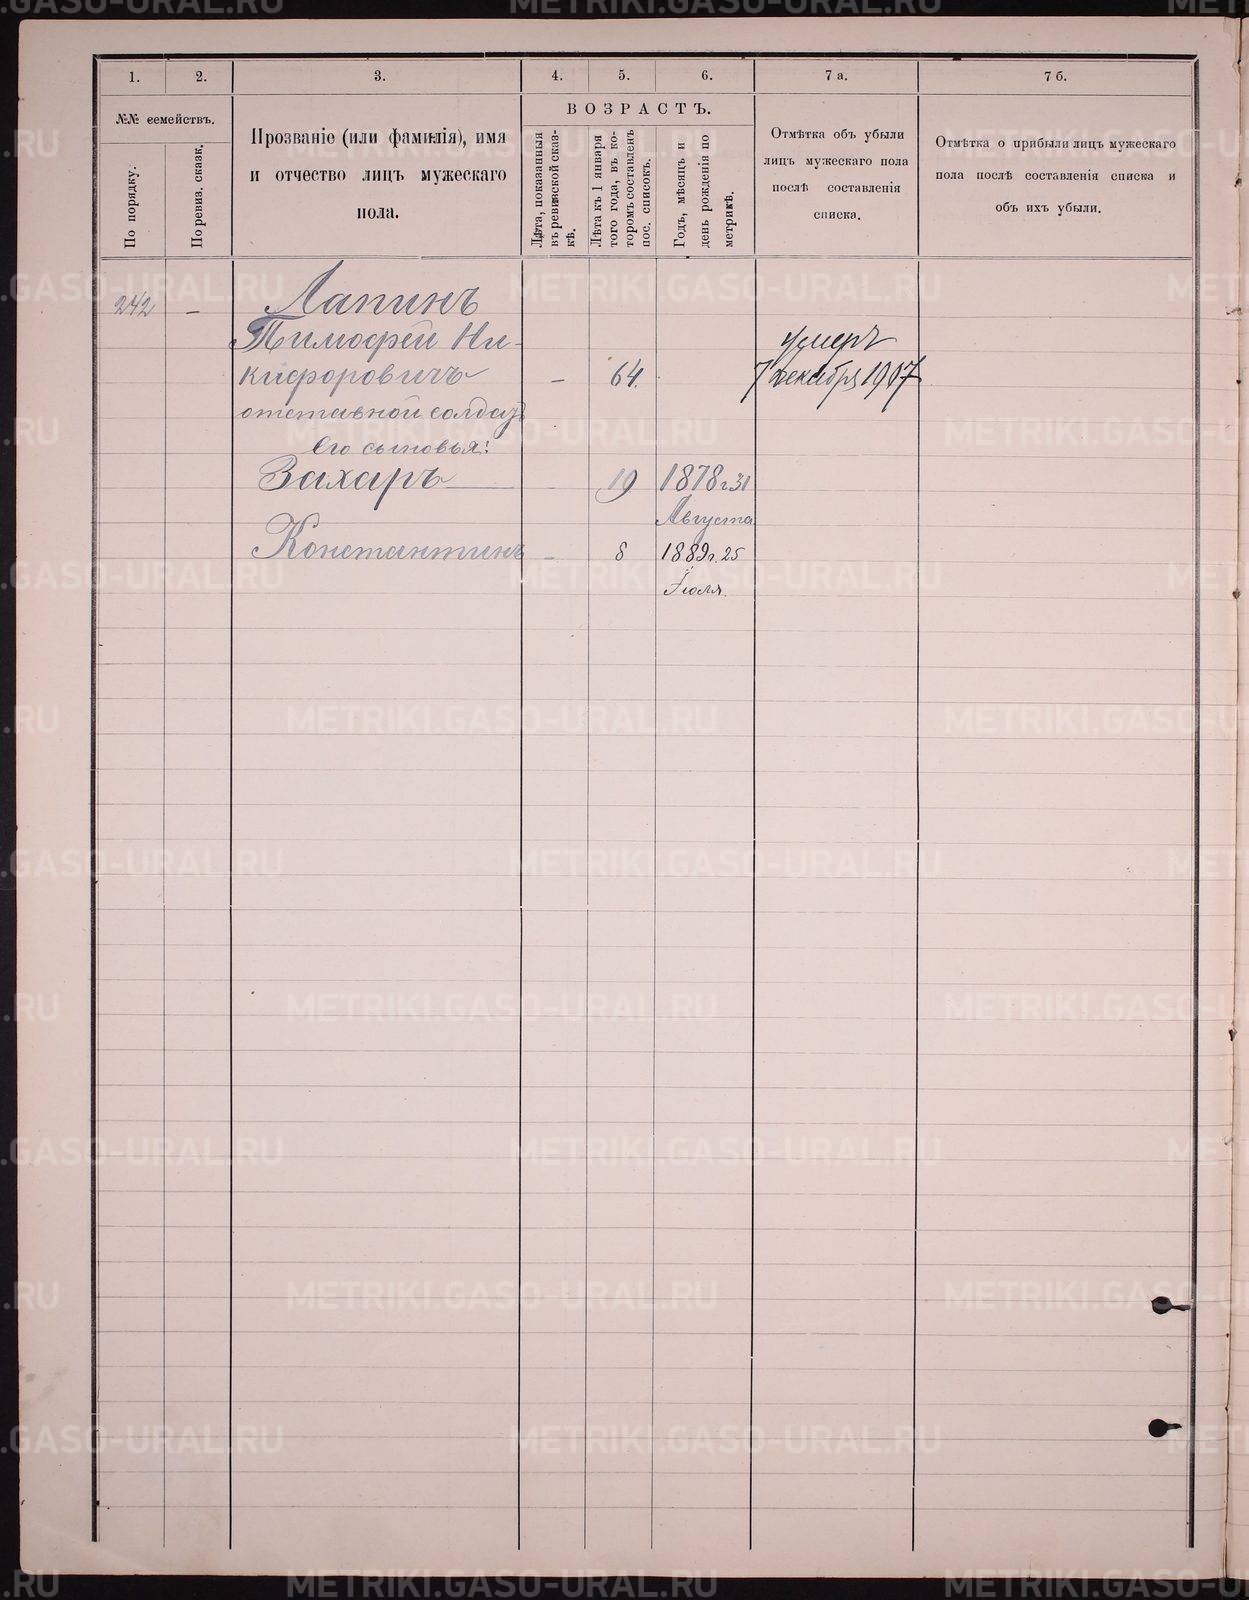 1. 2. 3. 4. 5. 6. 7 а. 7 б.
№№ семействъ.
По порядку.
По ревиз. сказк.
Прозваніе (или фамилія), имя
и отчество лицъ мужескаго
пола.
ВОЗРАСТЪ.
Лѣта, показанныя
въ ревизской сказ-
кѣ.
Лѣта къ 1 января
того года, въ ко-
торомъ составленъ
пос. списокъ.
Годъ, мѣсяцъ и
день рожденія по
метрикѣ.
Отмѣтка объ убыли
лицъ мужескаго пола
послѣ составленія
списка.
Отмѣтка о прибыли лицъ мужескаго
пола послѣ составленія списка и
объ ихъ убыли.
242 — Лапинъ
Тимофей Ни- умеръ
кифоровичъ — 64. 7 декабря 1907
отставной солдатъ
Его сыновья:
Захаръ — 19 1878 г. 31
Августа
Константинъ — 8 1889 г. 25
Іюля.
METRIKI.GASO-URAL.RU